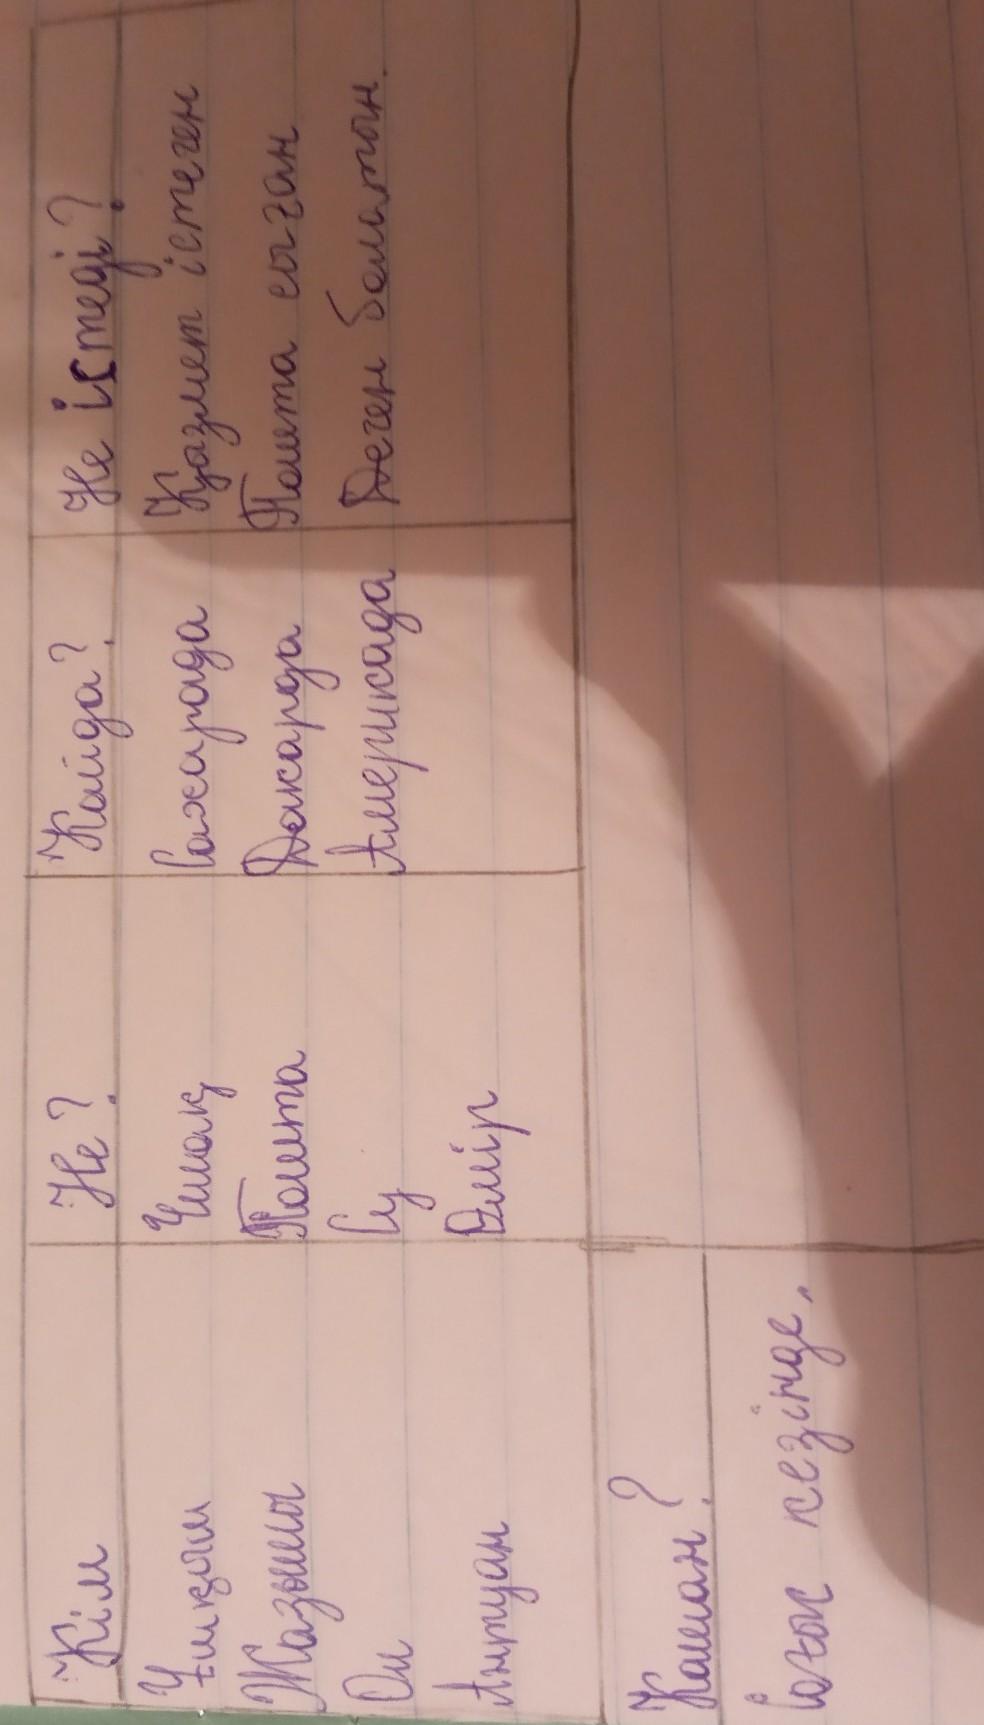 Кім Не? Кайда? Не істеді?
Ұшқыш Ұшақ Сахарада Қызмет істеген
Жазушы Пошта Дакарда Пошта сы ған
Ол Су Америкада Деген болатын.
Антуан Өмір
Кашан?
Соғыс кезінде.